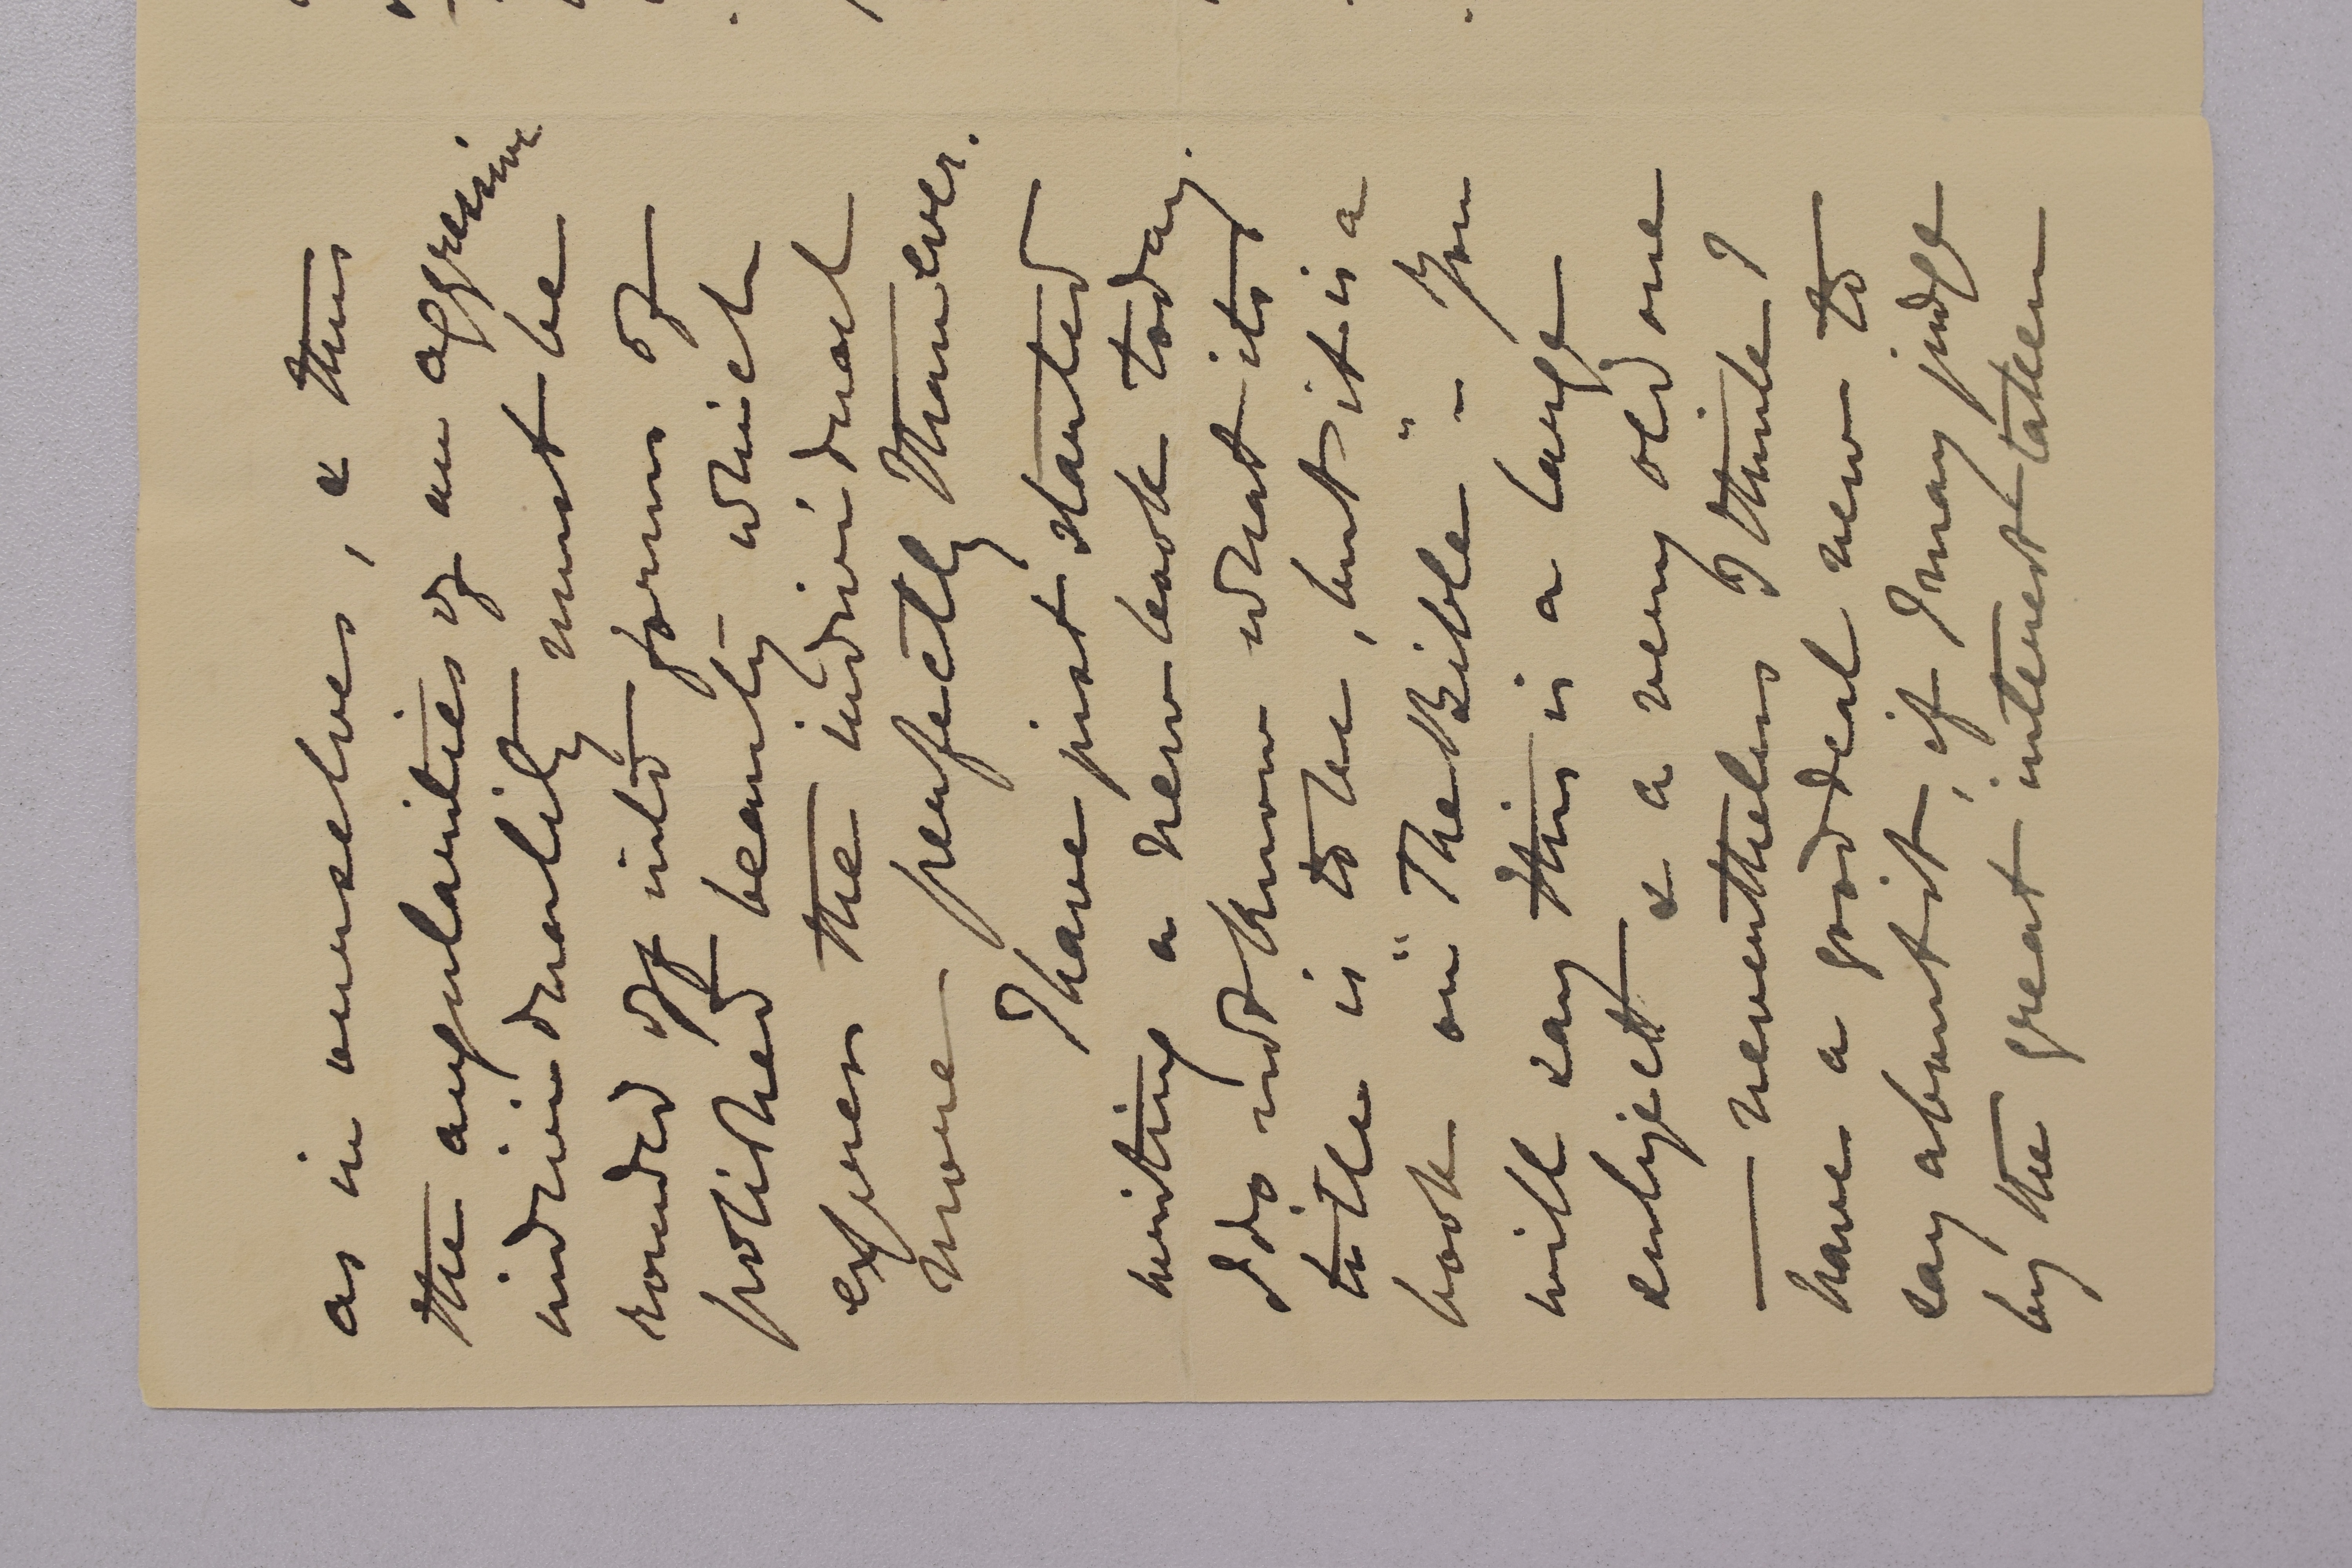 as in ourselves, & thus
the angularities of an aggressive
individuality must be
rounded off into forms of
polished beauty which
express the individual
more perfectly than ever.
I have just started
writing a new book today.
I do not know what its
title is to be, but it is a
book on "The Bible" - You
will say this is a large
subject & a very old one
— nevertheless I think I
have a good deal new to
say about it, if I may judge
by the great interest taken